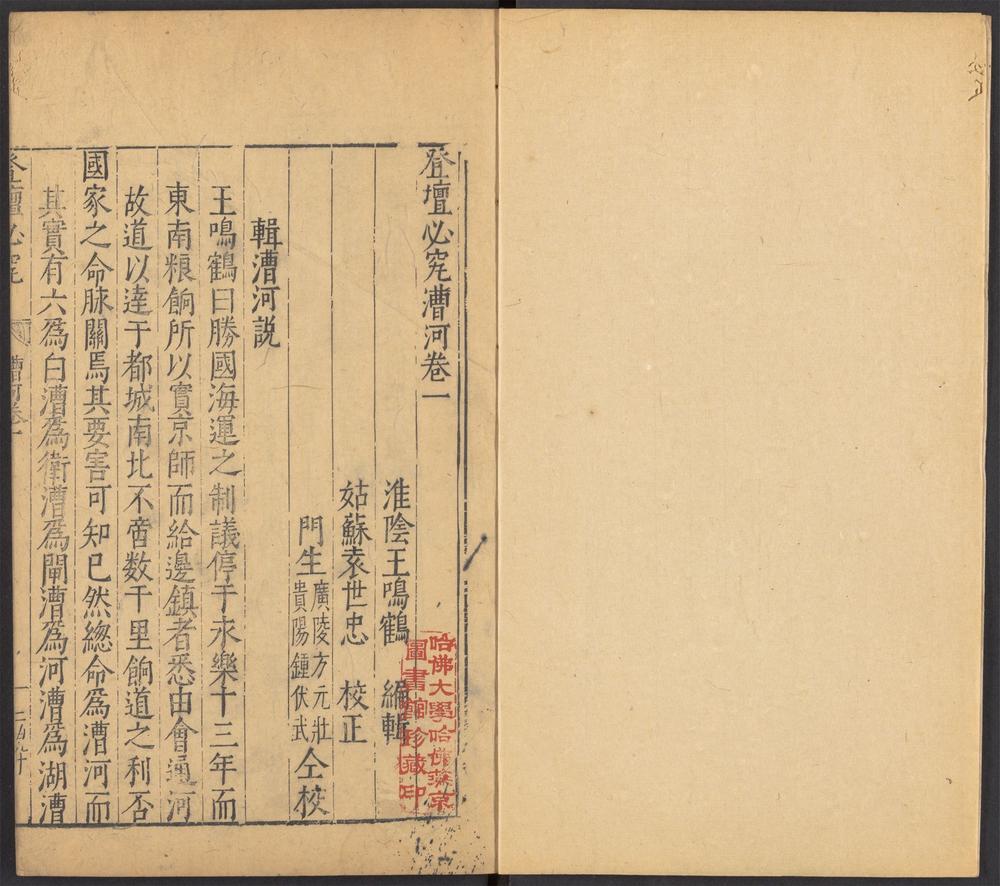 登壇必究漕河卷一
淮陰王鳴鶴 編輯
姑蘇袁世忠 校正
門生廣陵方元壯貴陽鍾伏武仝校
輯漕河説
王鳴鶴曰勝國海運之制議停于永樂十三年而
東南粮餉所以實京師而給邊鎮者悉由會通河
故道以達于都城南北不啻数千里餉道之利否
國家之命脉關焉其要害可知已然緫命爲漕河而
其實有六爲白漕爲衛漕爲閘漕爲河漕爲湖漕
登壇必究
漕河卷一
一
哈佛大學哈佛燕京
圖書館珍藏印